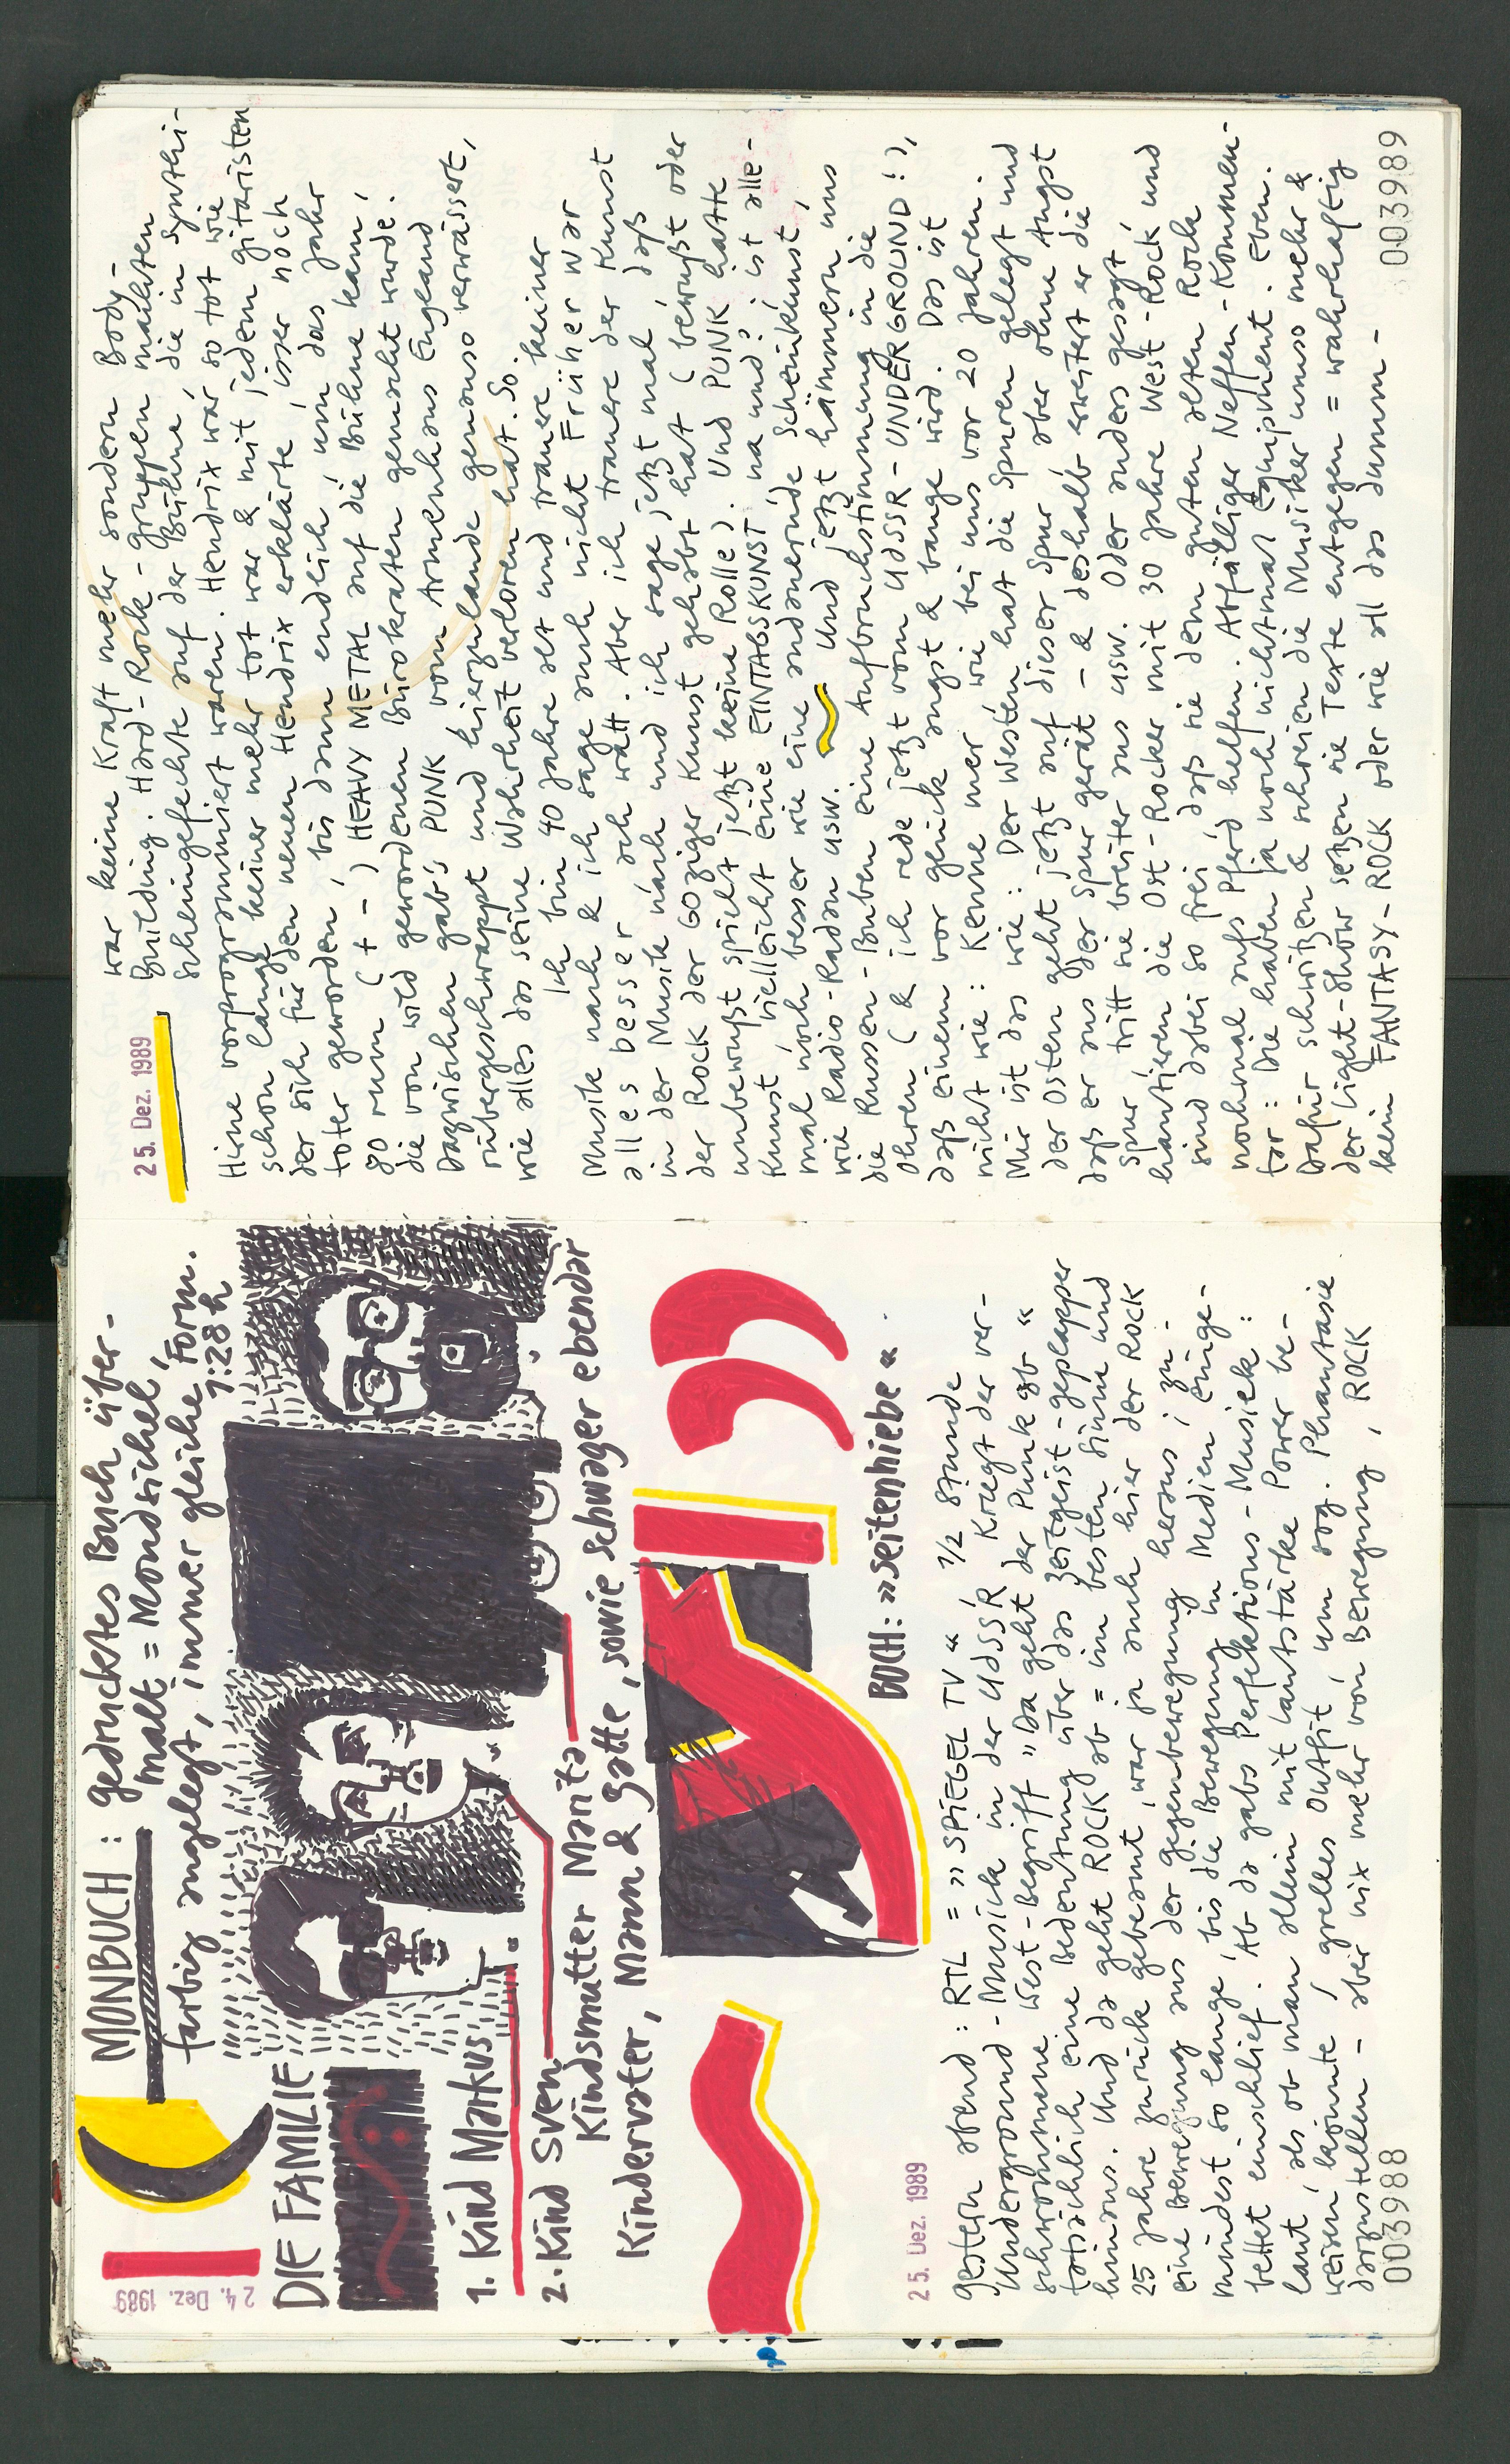 24. Dez. 1989
MONBUCH : gedrucktes Buch über-
malt = Mondsichel,
farbig angelegt, immer gleiche Form.
7:28 h
DIE FAMILIE
1. Kind Markus
2. Kind Sven
Kindsmutter Manita
Kindervater, Mann & Gatte, sowie Schwager ebendar
BUCH: »seitenhiebe«
25. Dez. 1989
gestern abend : RTL = »SPIEGEL TV« 1/2 Stunde
Underground-Musick in der UdSSR. Kriegt der ver-
schwommene West-Begriff "Da geht der Punk ab"
tatsächlich eine Bedeutung über das Zeitgeist-geplapper
hinaus. Und da geht ROCK ab = im besten Sinne und
25 Jahre zurück gebeamt, war ja auch hier der ROCK
eine Bewegung aus der gegenbewegung heraus, zu-
mindest so lange, bis die Bewegung in Medien einge-
bettet einschlief. Ab da gabs Perfektions-Musick :
laut, als ob man allein mit Lautstärke Power be-
weisen könnte, grelles Outfit, um sog. Phantasie
darzustellen - aber nix mehr von Bewegung, ROCK
003988
25. Dez. 1989
war keine Kraft mehr sondern Body-
Building. Hard-Rock-gruppen machten
Scheingefechte auf der Bühne, die in Synthi-
Hirne vorprogrammiert waren. Hendrix war so tot wie
schon lange keiner mehr tot war & mit jedem gitaristen
der sich für den neuen Hendrix erklärte, isser noch
toter geworden, bis dann endlich, um das Jahr
80 rum (+-) HEAVY METAL auf die Bühne kam,
die von wild gewordenen Bürokraten gemacht wurde.
Dazwischen gab's PUNK, vom Armenhaus England
rübergeschwappt und hierzulande genauso verwässert,
wie alles das seine Wahrheit verloren hat. So.
Ich bin 40 Jahre alt und trauere keiner
Musik nach & ich sage auch nicht Früher war
alles besser, ach watt. Aber ich trauere der Kunst
in der Musik nach und ich sage jetzt mal, daß
der ROCK der 60ziger Kunst gehabt hat (bewußt oder
unbewußt spielt jetzt keine Rolle). Und PUNK hatte
Kunst, vielleicht eine EINTAGSKUNST, na und?, ist alle-
mal noch besser wie eine andauernde Scheinkunst,
wie Radio-Radau usw. Und jetzt hämmern uns
die Russen-Buben eine Aufbruchstimmung in die
Ohren (& ich rede jetzt vom UdSSR-UNDERGROUND!),
daß einem vor glück angst & bange wird. Das ist
nicht wie : Kenne mer wie bei uns vor 20 Jahren.
Mir ist das wie : Der Westen hat die Spuren gelegt und
der Osten geht jetzt auf dieser Spur, aber ohne Angst
daß er aus der Spur gerät - & deshalb erweitert er die
Spur, tritt sie breiter aus usw. Oder anders gesagt,
hantieren die Ost-Rocker mit 30 Jahre West-Rock, und
sind dabei so frei, daß sie dem guten alten Rock
nochmal aufs Pferd helfen. Abfälliger Neffen-Kommen-
tar : Die haben ja noch nichtmal Equipment. Eben.
Dafür schwitzen & schreien die Musiker umso mehr &
der Light-Show setzen sie Texte entgegen = wahrhaftig
kein FANTASY-ROCK oder wie all das dumm-
003989